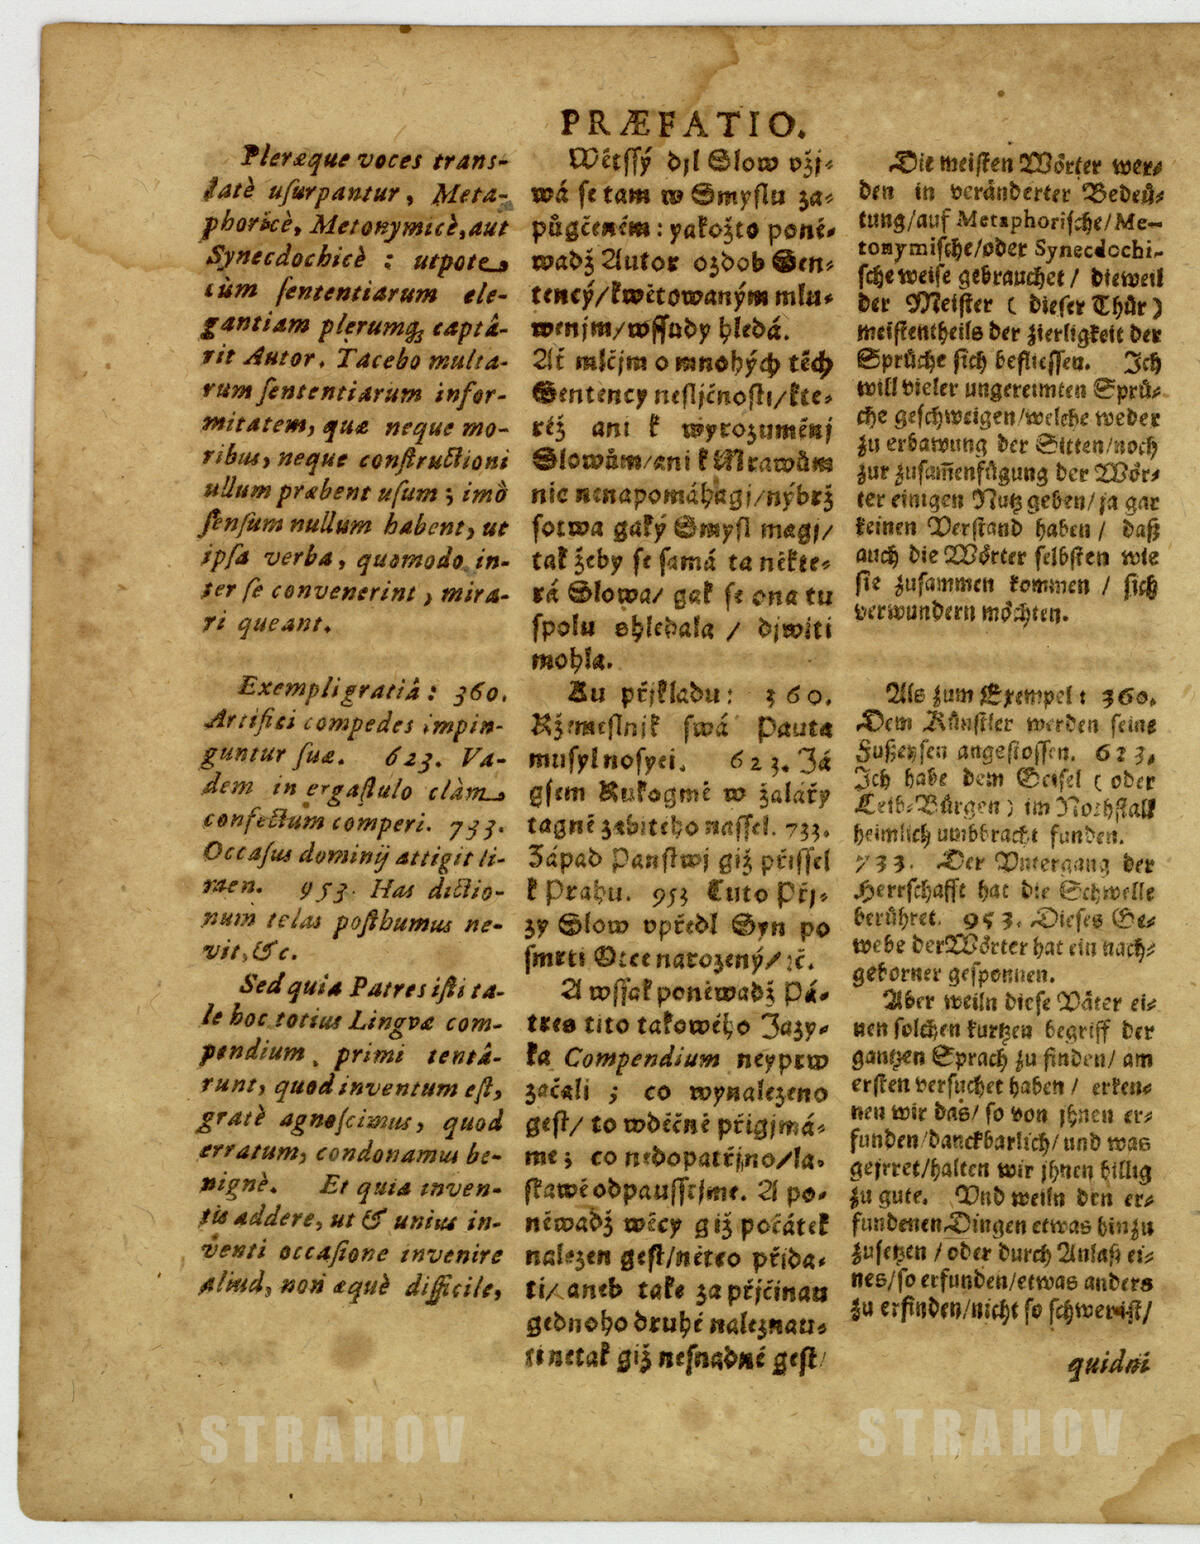 PRÆFATIO.
Pleræque voces trans-
latè uſurpantur, Meta-
phoricè, Metonymicè, aut
Synecdochicè : utpote
cùm ſententiarum ele-
gantiam plerumq; captâ-
rit Autor. Tacebo multa-
rum ſententiarum infor-
mitatem, quæ neque mo-
ribus, neque conſtructioni
ullum præbent uſum ; imò
ſenſum nullum habent, ut
ipſa verba, quomodo in-
ter ſe convenerint, mira-
ri queant.
Exempli gratiâ : 360.
Artifici compedes impin-
guntur ſuæ. 623. Va-
dem in ergaſtulo clàm
confectum comperi. 733.
Occaſus dominij attigit li-
men. 953. Has dictio-
num telas poſthumus ne-
vit, &c.
Sed quia Patres iſti ta-
le hoc totius Lingvæ com-
pendium primi tentâ-
runt, quod inventum eſt,
gratè agnoſcimus, quod
erratum, condonamus be-
nignè. Et quia inven-
tis addere, ut & unius in-
venti occaſione invenire
aliud, non æquè difficile,
Wětſſý djl Slow vžj-
wá ſe tam w Smyſlu za-
půgčeném : yakožto poně-
wadž Autor ozdob Sen-
tencý/ kwětowaným mlu-
wenjm/ wſſudy hledá.
Ať mlčjm o mnohých těch
Sentency neſljčnoſti/ kte-
réž ani k wyrozuměnj
Slowům/ ani k Mrawům
nic nenapomáhagj/ nýbrž
ſotwa gaký Smyſl magj/
tak žeby ſe ſamá ta někte-
rá Slowa/ gak ſe ona tu
ſpolu shledala / djwiti
mohla.
Ku přjkladu : 360.
Ržemeſlnik ſwá Pauta
muſyl noſyti. 623. Já
gſem Rukogmě w žalářy
tagně zabitého naſſel. 733.
Západ Panſtwj giž přiſſel
k Prahu. 953 Tuto Přj-
zy Slow vpředl Syn po
ſmrti Otce narozený/ ꝛč.
A wſſak poněwadž Pá-
tres tito takowého Jazy-
ka Compendium neyprw
začali ; co wynalezeno
geſt/ to wděčně přigjmá-
me ; co nedopatřjno/ la-
ſkawě odpauſſtjme. A po-
něwadž wěcy giž počátek
nalezen geſt/ něteo přida-
ti/ aneb take za přjčinau
gednoho druhé naleznau-
ti netak giž neſnadné geſt/
Die meiſten Wörter wer-
den in veränderter Bedeü-
tung/ auf Metaphoriſche/ Me-
tonymiſche/ oder Synecdochi-
ſche weiſe gebrauchet / dieweil
der Meiſter ( dieſer Thür )
meiſtentheils der zierligkeit der
Sprüche ſich beflieſſen. Ich
will vieler ungereimten Sprü-
che geſchweigen/ welche weder
zu erbawung der Sitten/ noch
zur zuſam̄enfügung der Wör-
ter einigen Nutz geben/ ja gar
keinen Verſtand haben / daß
auch die Wörter ſelbſten wie
ſie zuſammen kommen / ſich
verwundern möchten.
Als zum Exempel : 360.
Dem Künſtler werden ſeine
Fußeyſen angeſtoſſen. 623.
Ich habe dem Geiſel ( oder
Leib-Bürgen ) im Nothſtall
heimlich umbbracht funden.
733. Der Vntergang der
Herrſchafft hat die Schwelle
berühret. 953. Dieſes Ge-
webe der Wörter hat ein nach-
geborner geſponnen.
Aber weiln dieſe Väter ei-
nen ſolchen kurtzen begriff der
gantzen Sprach zu finden/ am
erſten verſuchet haben / erken-
nen wir das/ ſo von jhnen er-
funden/ danckbarlich/ und was
gejrret/ halten wir jhnen billig
zu gute. Vnd weiln den er-
fundenen Dingen etwas hinzu
zuſetzen / oder durch Anlaß ei-
nes/ ſo erfunden/ etwas anders
zu erfinden/ nicht ſo ſchwer iſt/
quidni
STRAHOV
STRAHOV